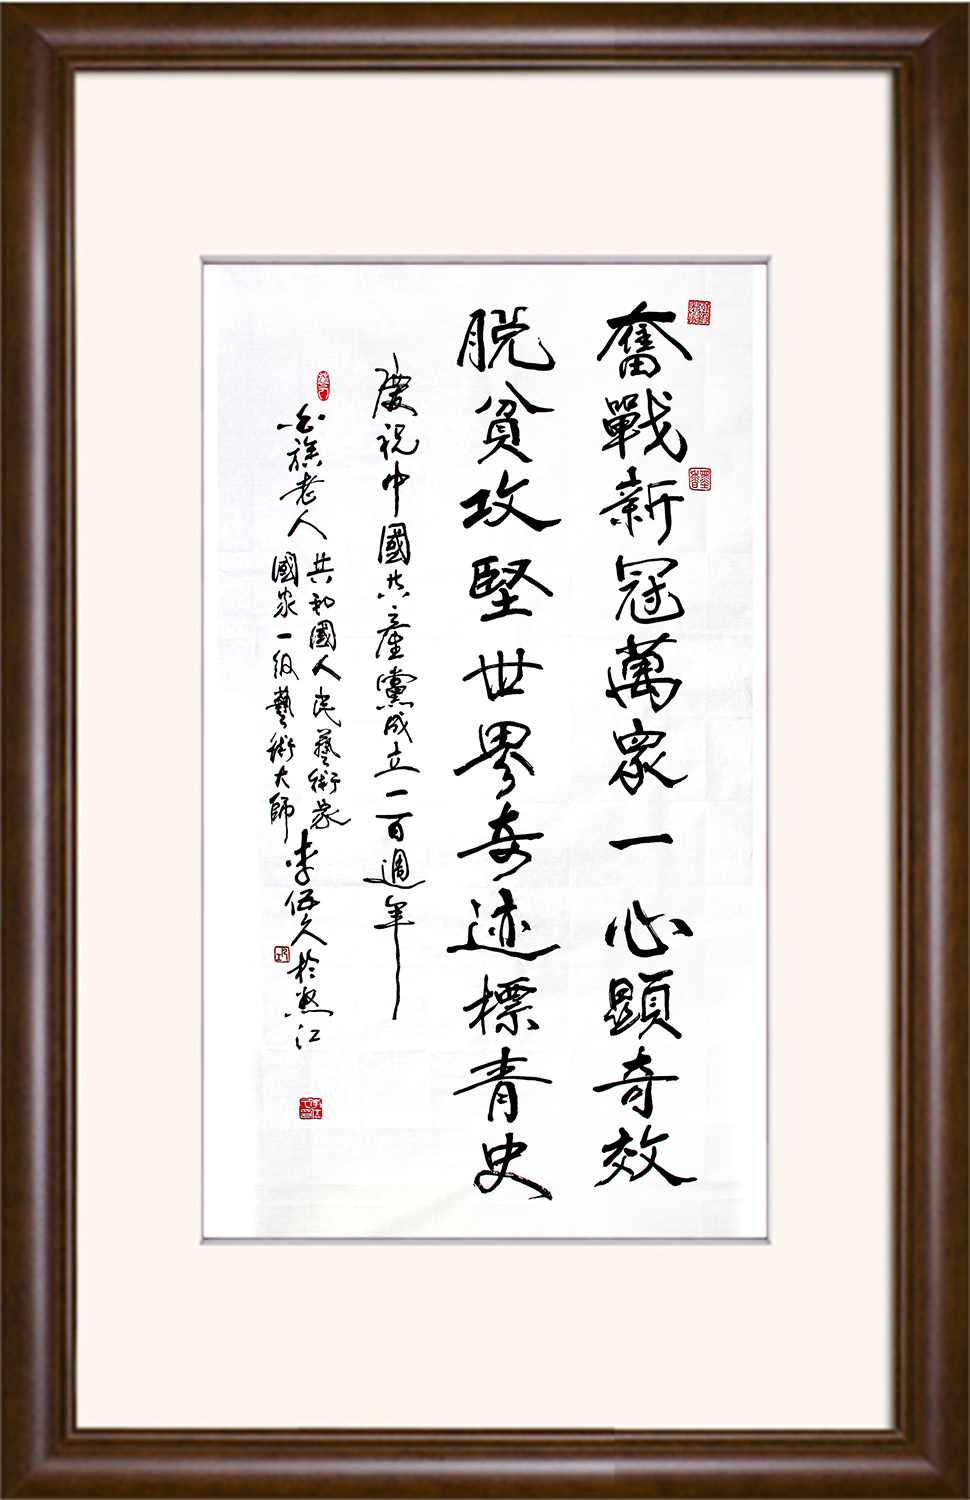 奮戰新冠萬眾一心顯奇效
脫貧攻堅世界奇迹標青史
慶祝中國共產黨成立一百週年
白族老人
共和國人民藝術家
國家一級藝術大師
李伍久於怒江